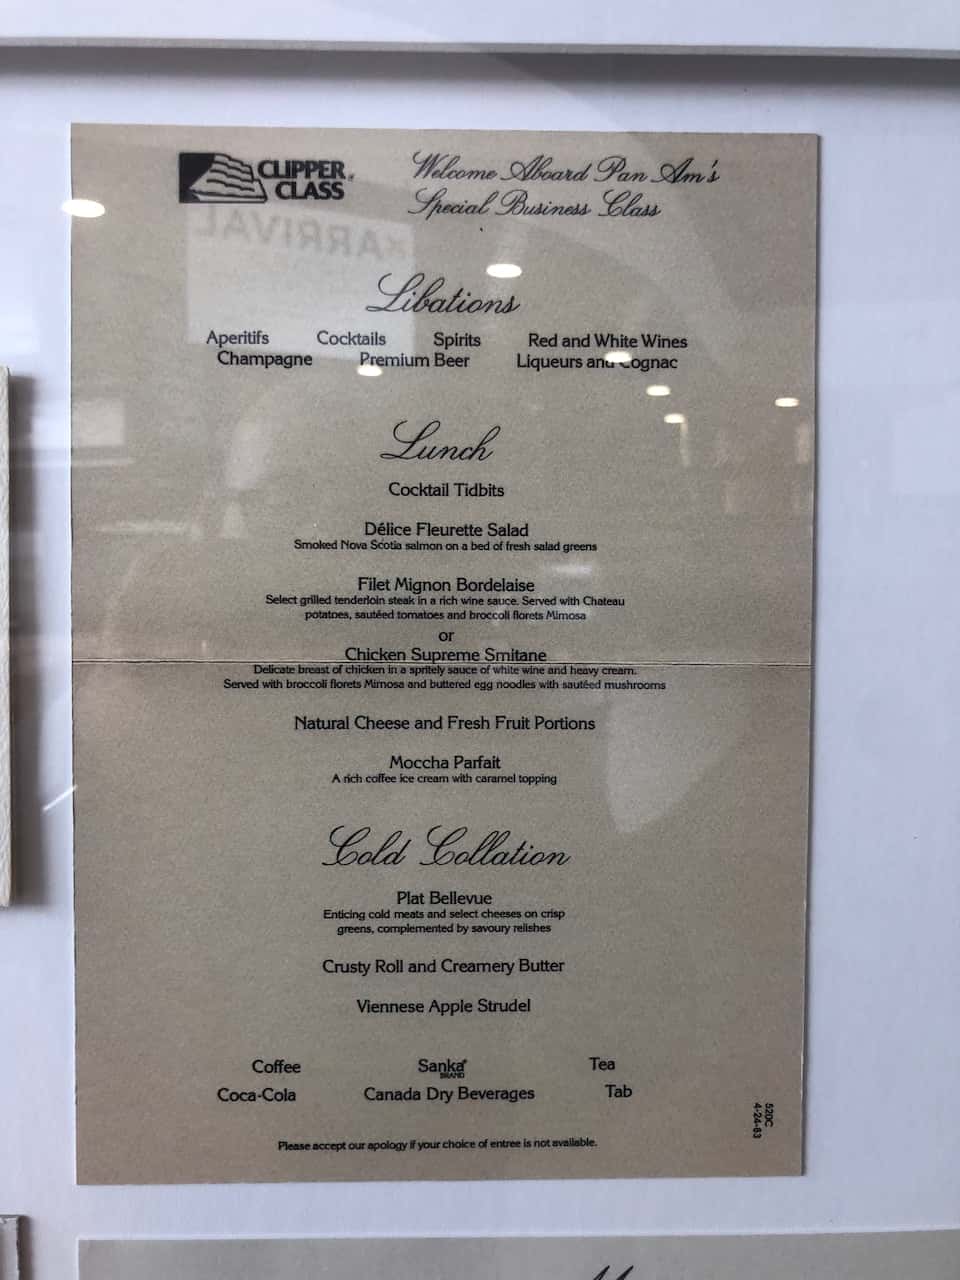 CLIPPER
CLASS
Welcome Aboard Pan Am's
Special Business Class
ARRIVAL
Libations
Aperitifs Cocktails Spirits Red and White Wines
Champagne Premium Beer Liqueurs and Cognac
Lunch
Cocktail Tidbits
Délice Fleurette Salad
Smoked Nova Scotia salmon on a bed of fresh salad greens
Filet Mignon Bordelaise
Select grilled tenderloin steak in a rich wine sauce. Served with Chateau
potatoes, sautéed tomatoes and broccoli florets Mimosa
or
Chicken Supreme Smitane
Delicate breast of chicken in a spritely sauce of white wine and heavy cream.
Served with broccoli florets Mimosa and buttered egg noodles with sautéed mushrooms
Natural Cheese and Fresh Fruit Portions
Moccha Parfait
A rich coffee ice cream with caramel topping
Cold Collation
Plat Bellevue
Enticing cold meats and select cheeses on crisp
greens, complemented by savoury relishes
Crusty Roll and Creamery Butter
Viennese Apple Strudel
Coffee Sanka® Tea
BRAND
Coca-Cola Canada Dry Beverages Tab
520C
4-24-83
Please accept our apology if your choice of entree is not available.